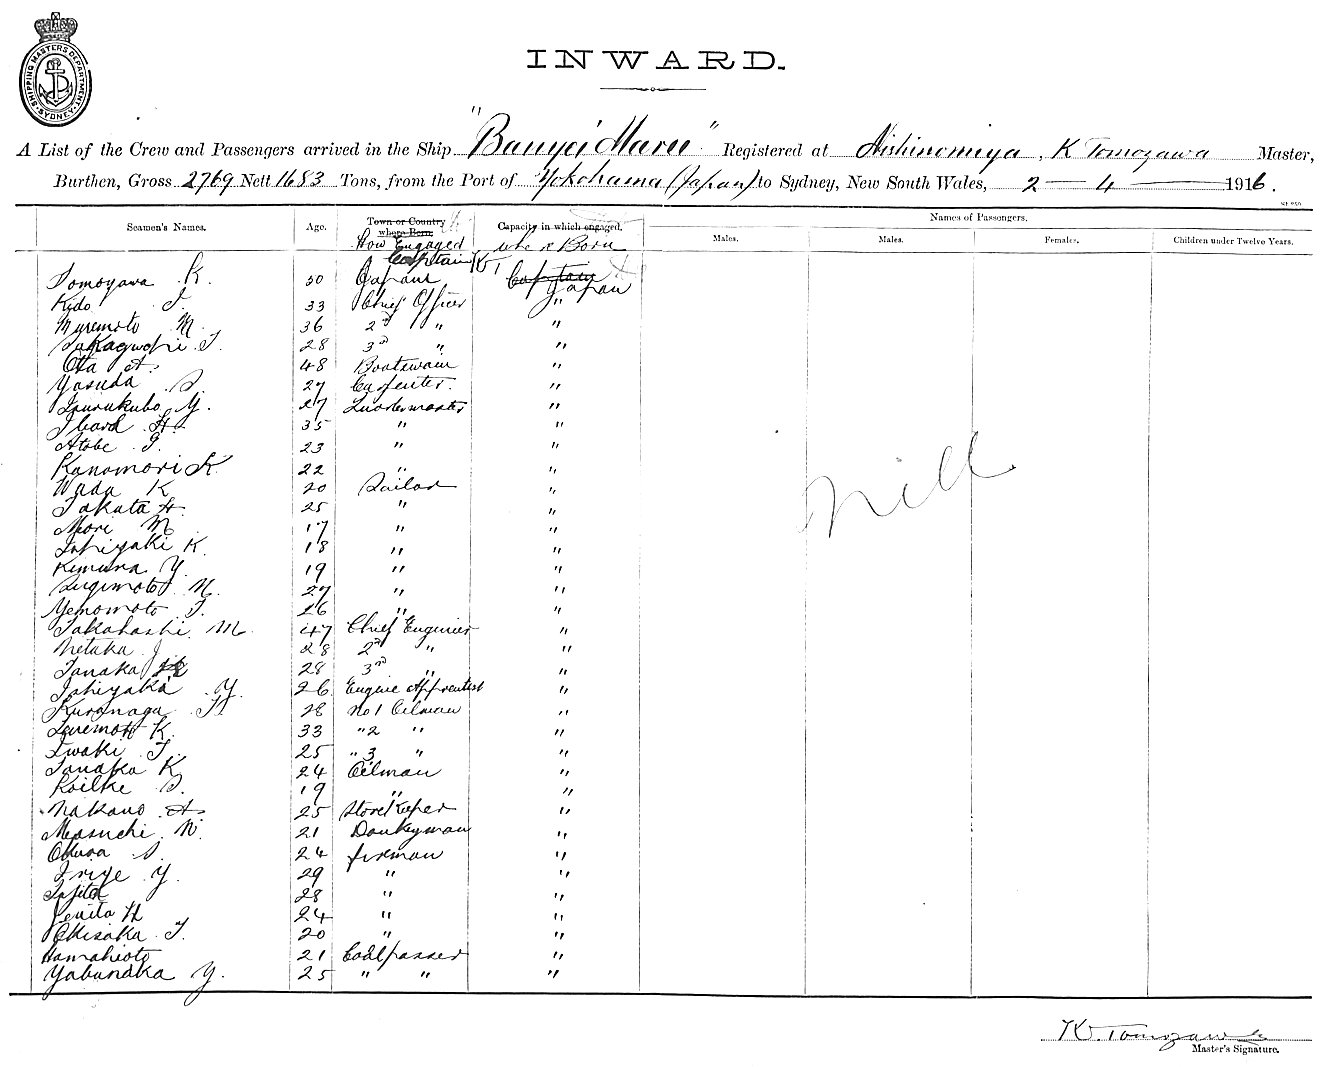 SHIPPING MASTERS DEPARTMENT SYDNEY
INWARD.
A List of the Crew and Passengers arrived in the Ship "Banyei Maru" Registered at Nishinomiya, K Tomozawa Master,
Burthen, Gross 2769 Nett 1683 Tons, from the Port of Yokohama (Japan) to Sydney, New South Wales, 2 — 4 — 1916.
Seamen's Names. Age. Town or Country where Born. Capacity in which engaged. Names of Passengers.
Males. Males. Females. Children under Twelve Years.
How Engaged where Born
Captain
Tomoyawa K. 30 Japan Captain Japan
Kido T. 33 Chief Officer "
M. 36 2nd " "
T. 28 3rd " "
Ota A. 48 Boatswain "
Yasuda S. 27 Carpenter. "
Y. 27 Quartermaster "
H. 35 " "
Atobe G. 23 " "
Kanomori K 22 " "
Wada K 20 Sailor "
Takata H. 25 " "
Mori M 17 " "
K. 18 " "
Kimura Y 19 " "
Sugimoto M. 27 " "
Yemomoto T. 26 " "
Takahashi M. 47 Chief Enginier "
J 28 2nd " "
Tanaka 28 3rd " "
Ishiyaka Y. 26 Engine Apprentist "
Kuronaga H 28 No 1 Oilman "
K. 33 " 2 " "
Iwaki T. 25 " 3 " "
Tanaka K 24 Oilman "
Koike S. 19 " "
Nakano A. 25 Store Keeper "
Masuchi N. 21 Donkeyman "
S. 24 fireman "
Iriye Y. 29 " "
28 " "
H 24 " "
Okisaka T. 20 " "
21 Coalpasser "
Yabunaka Y. 25 " " "
Nill
K. Tomozawa
Master's Signature.